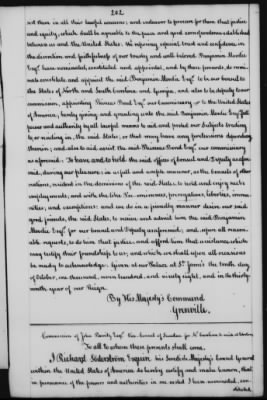 202
sist them in all their lawful concerns; and endeavor to procure for them that justice
and equity, which shall be agreeable to the peace and good correspondence established
between us and the United States. We reposing especial trust and confidence in
the discretion and faithfulness of our trusty and well beloved Benjamin Moodie
Esqr. have nominated, constituted and appointed, and by these presents, do nomi-
nate constitute and appoint the said Benjamin Moodie Esqr. to be our consul to
the States of North and South Carolina and Georgia, and also to be deputy to our
commissary, appointing Phineas Bond Esqr. our Commissary to the United States
of America; hereby giving and granting unto the said Benjamin Moodie Esqr. full
power and authority by all lawful means to aid and protect our Subjects trading
to or residing in, the said States, or that may have any pretensions depending
therein; and also to aid assist the said Phineas Bond Esqr. our commissary
as aforesaid. To have and to hold the said offices of Consul and Deputy as afore-
said, during our pleasure; in as full and ample manner, as the Consuls of other
nations, resident in the dominions of the said States, to hold and enjoy such
employments; and with the like Pre-eminences, privileges, liberties, immu-
nities, and exemptions: and we do in a friendly manner desire our said
good friends, the said States, to receive and admit the said Benjamin
Moodie Esqr. for our Consul and Deputy as aforesaid; and upon all reason-
able requests, to do him that justice, and afford him that assistance, which
may testify their friendship to us, and which we shall upon all occasions
be ready to acknowledge. Given at our Palace at St. James's the tenth day
of October, one thousand, seven hundred and ninety eight, and in the thirty-
ninth year of our Reign.
By His Majesty's Command
Grenville.
Commission of John
To all to whom these presents shall come.
I Richard Söderström Esquire his Swedish Majesty's Consul General
within the United States of America do hereby certify and make known, that
in pursuance of the powers and authorities in me vested I have nominated, con-
stituted,